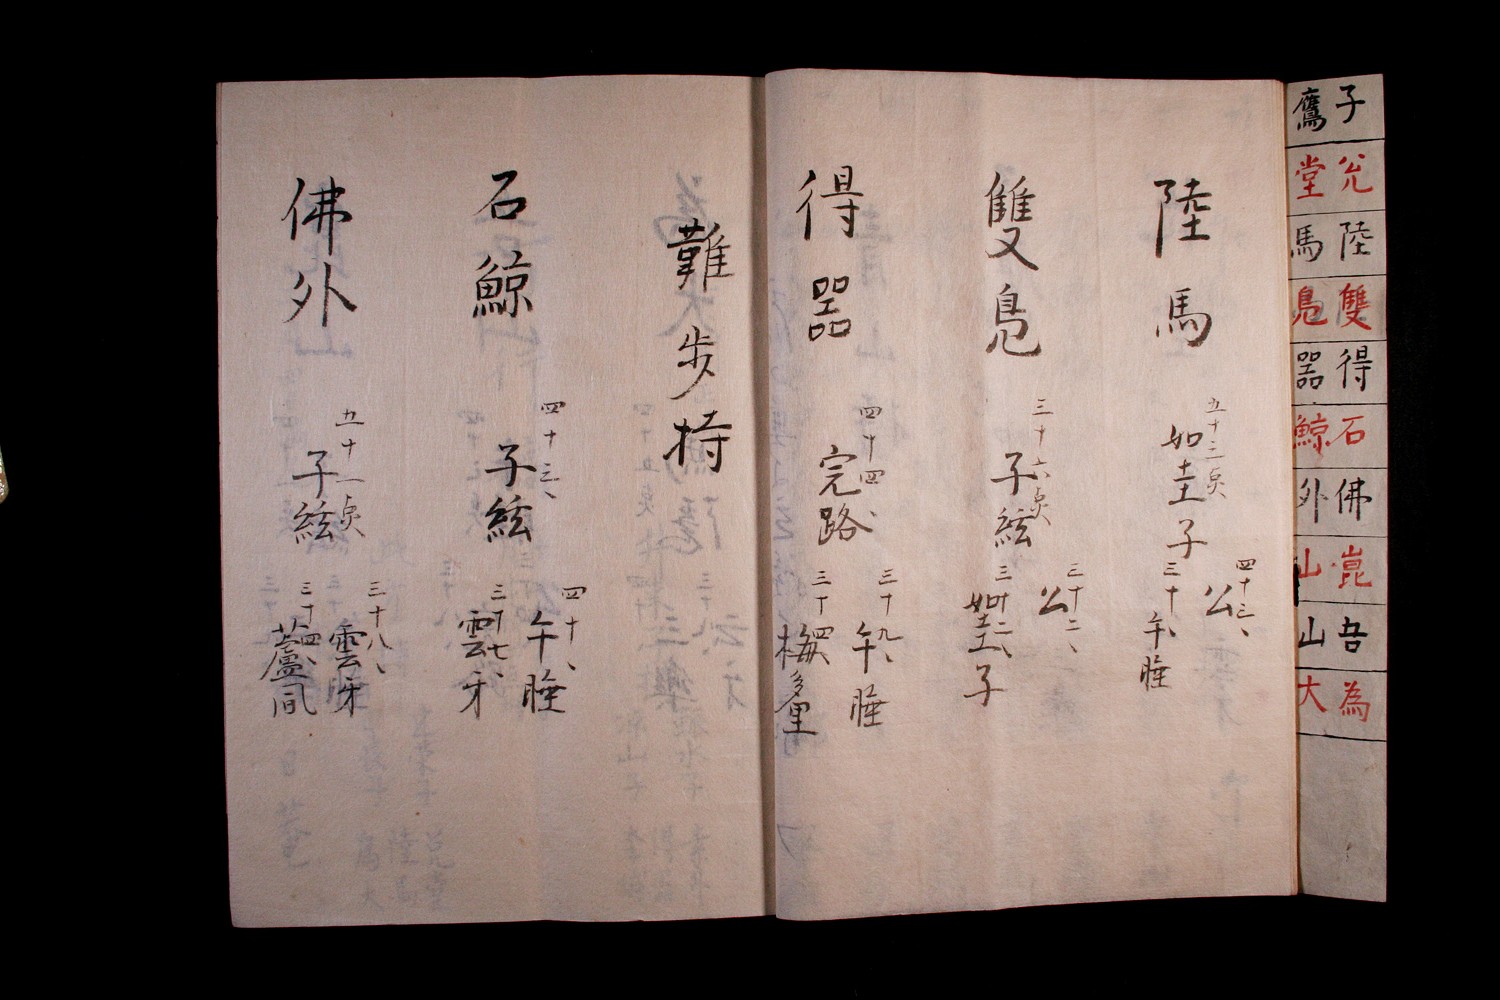 子鷹
兊堂
陸馬
雙鳬
得器
石鯨
佛外
崑山
吾山
為大
陸馬
五十三点
如圭子
四十三、
公
三十、
午睡
雙鳬
三十六点
子絃
三十二、
公
三十二、
如圭子
得器
四十四、
完路
三十九、
午睡
三十四、
梅多里
難歩持
石鯨
四十三、
子絃
四十、
午睡
三十七、
雲牙
佛外
五十一点
子絃
三十八、
雲牙
三十四、
蘆風